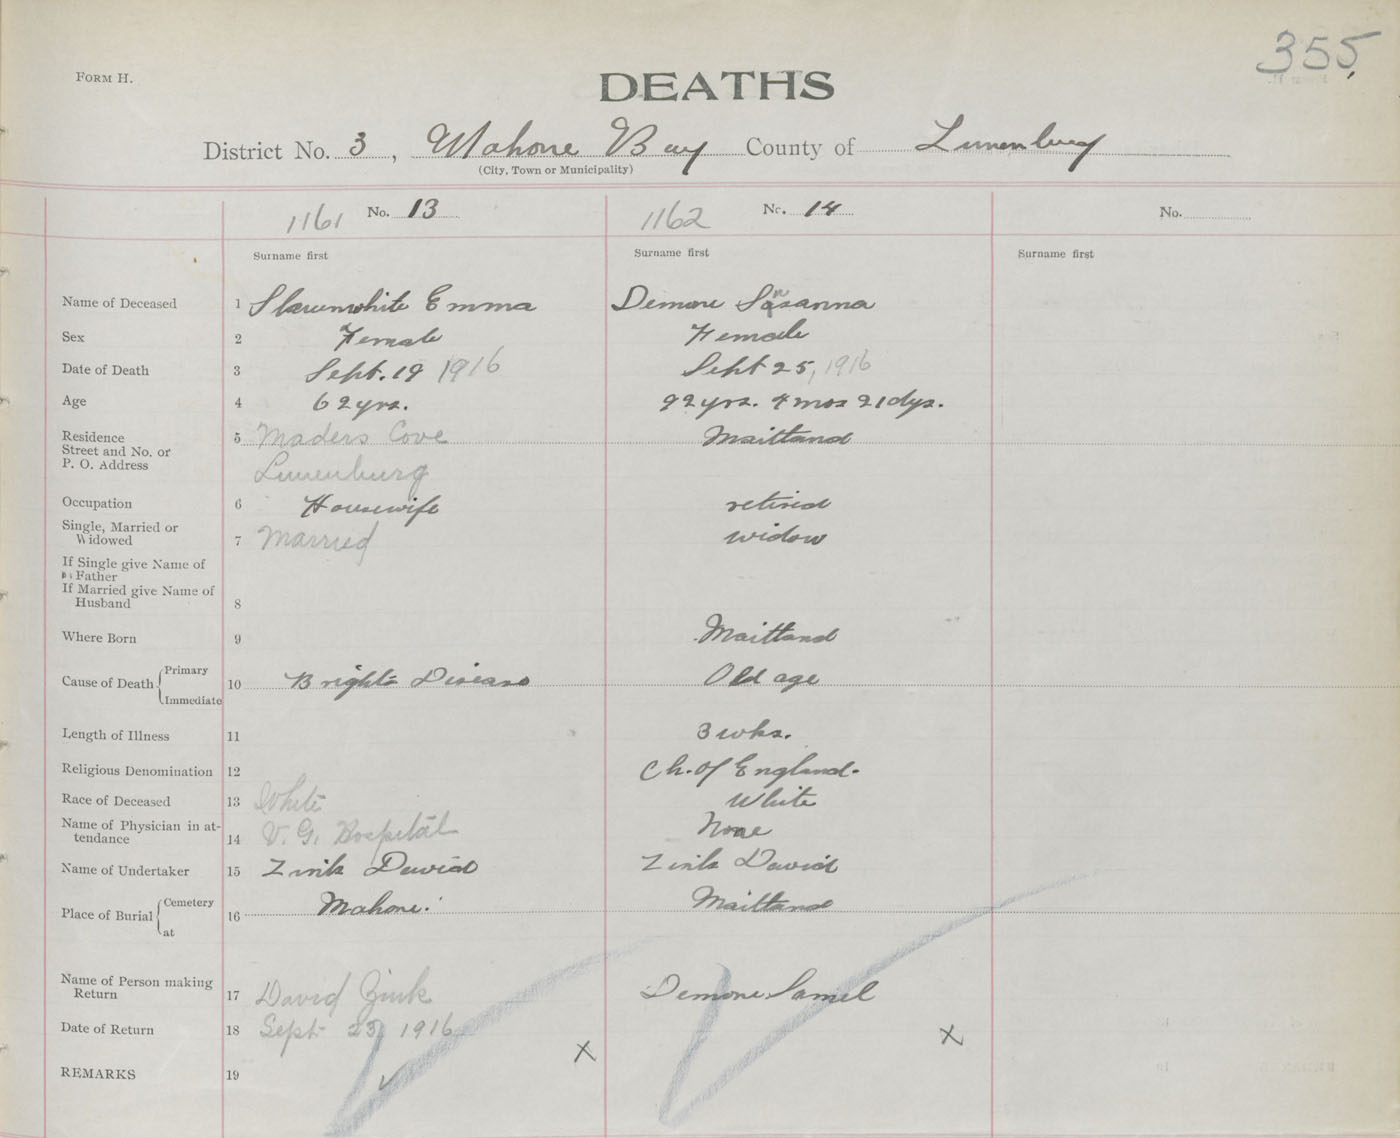 355,
FORM H.
DEATHS
District No. 3, Mahone Bay County of Lunenburg
(City, Town or Municipality)
1161 No. 13 1162 No. 14 No.
Surname first Surname first Surname first
Name of Deceased 1 Slawenwhite Emma Demone Susanna
Sex 2 Female Female
Date of Death 3 Sept. 19 1916 Sept 25, 1916
Age 4 62 yrs. 92 yrs. 4 mos 21 dys.
Residence 5 Maders Cove Maitland
Street and No. or
P. O. Address Lunenburg
Occupation 6 Housewife retired
Single, Married or
Widowed 7 Married widow
If Single give Name of
Father
If Married give Name of
Husband 8
Where Born 9 Maitland
Cause of Death Primary
10 Brights Disease Old age
Immediate
Length of Illness 11 3 wks.
Religious Denomination 12 Ch. of England.
Race of Deceased 13 White White
Name of Physician in at-
tendance 14 V. G. Hospital None
Name of Undertaker 15 Zink David Zink David
Place of Burial Cemetery
16 Mahone. Maitland
at
Name of Person making
Return 17 David Zink Demone Samel
Date of Return 18 Sept 23, 1916
X X
REMARKS 19